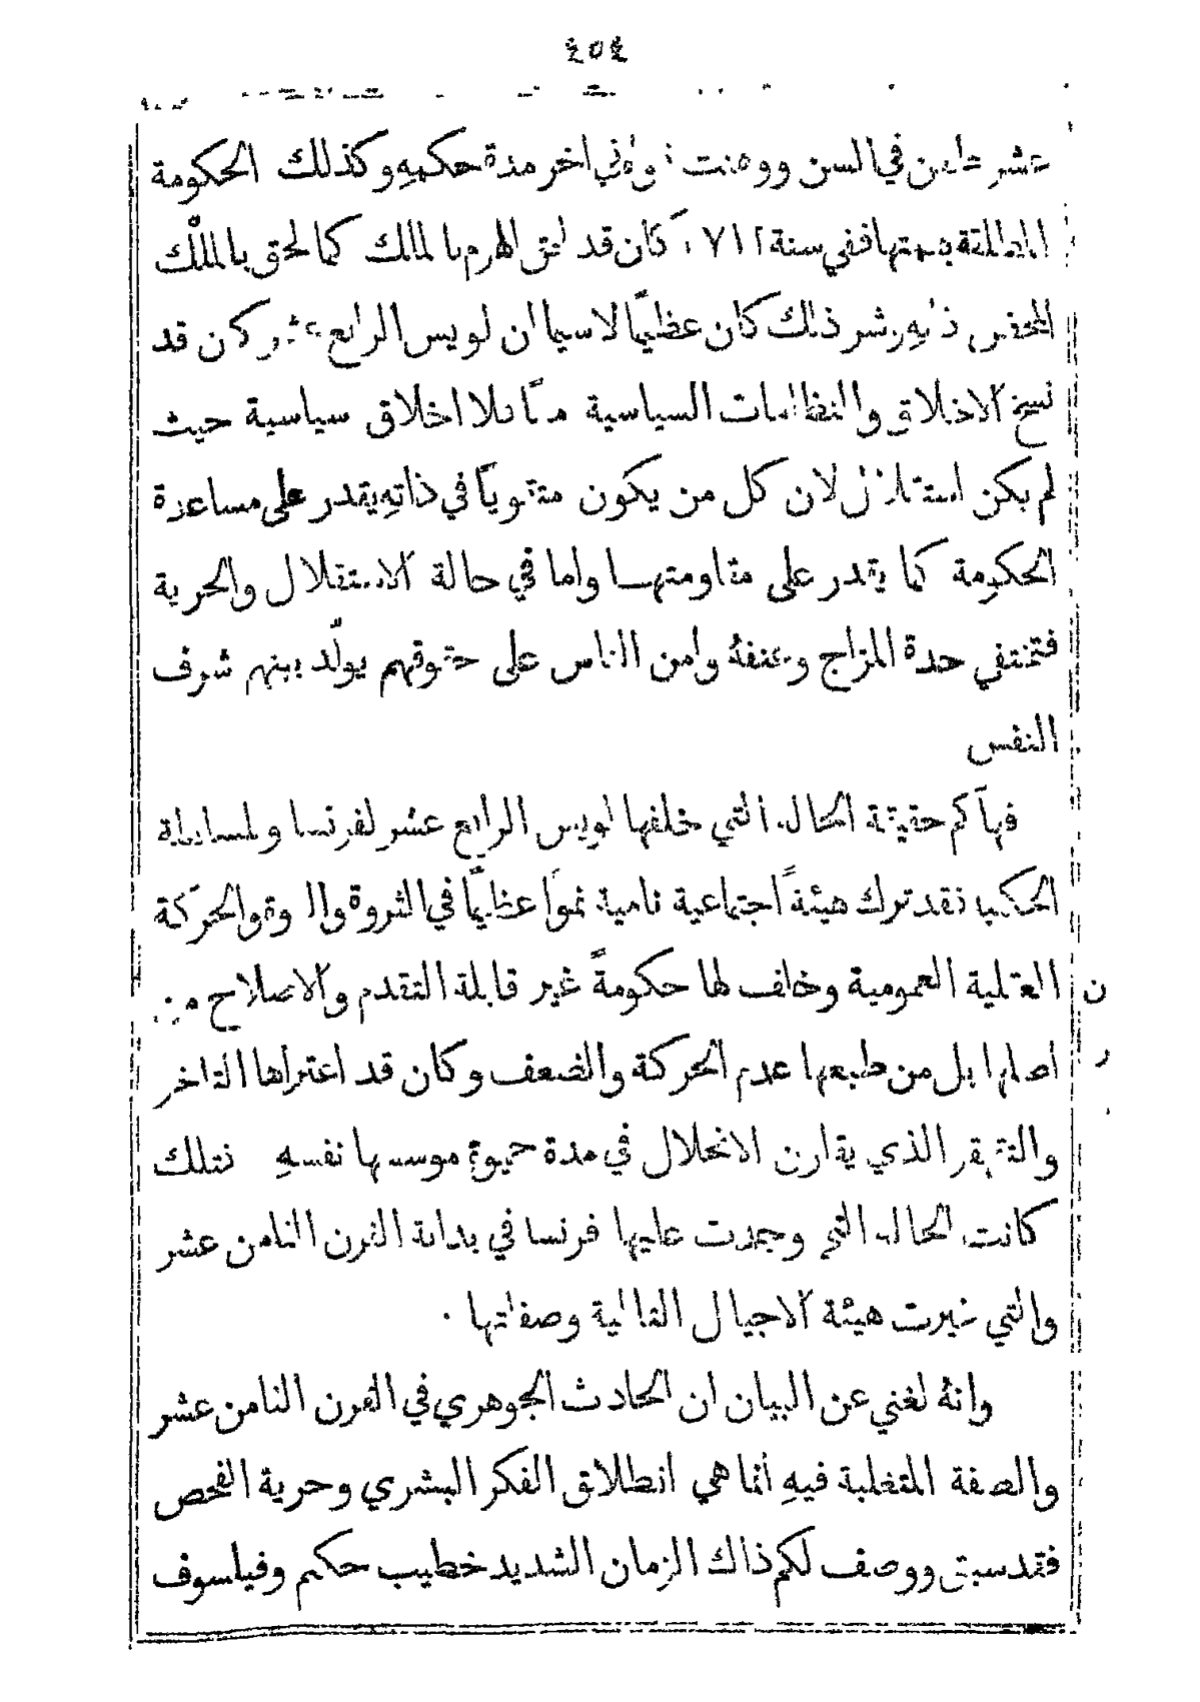 ٤٥٤
عشر طعن في السن ووهنت قواه في اخر مدة حكمهِ وكذلك الحكومة
المطلقة برمتها ففي سنة ١٧١٢ كان قد لحق الهرم بالمالك كما لحق بالملْك
المحض ذاتهِ وشر ذلك كان عظيمًا لاسيما ان لويس الرابع عشر كان قد
نسخ الاخلاق والنظامات السياسية معًا فلا اخلاق سياسية حيث
لم يكن استقلال لان كل من يكون متقويًا في ذاتهِ يقدر على مساعدة
الحكومة كما يقدر على مقاومتها واما في حالة الاستقلال والحرية
فتنتفي حدة المزاج وعنفهُ وامن الناس على حقوقهم يولّد بينهم شرف
النفس
فهآكم حقيقة الحالة التي خلفها لويس الرابع عشر لفرنسا ولسلطة
الحكم فقد ترك هيئةً اجتماعية نامية نموًا عظيمًا في الثروة والقوة والحركة
العقلية العمومية وخلف لها حكومةً غير قابلة التقدم والاصلاح من
اصلها بل من طبعها عدم الحركة والضعف وكان قد اعتراها التاخر
والتقهقر الذي يقارن الانحلال في مدة حيوة موسسها نفسهِ فتلك
كانت الحالة التي وجدت عليها فرنسا في بداية القرن الثامن عشر
والتي غيرت هيئة الاجيال التالية وصفاتها ٠
وانهُ لغني عن البيان ان الحادث الجوهري في القرن الثامن عشر
والصفة المتغلبة فيهِ انما هي انطلاق الفكر البشري وحرية الفحص
فقد سبق ووصف لكم ذاك الزمان الشديد خطيب حكيم وفيلسوف